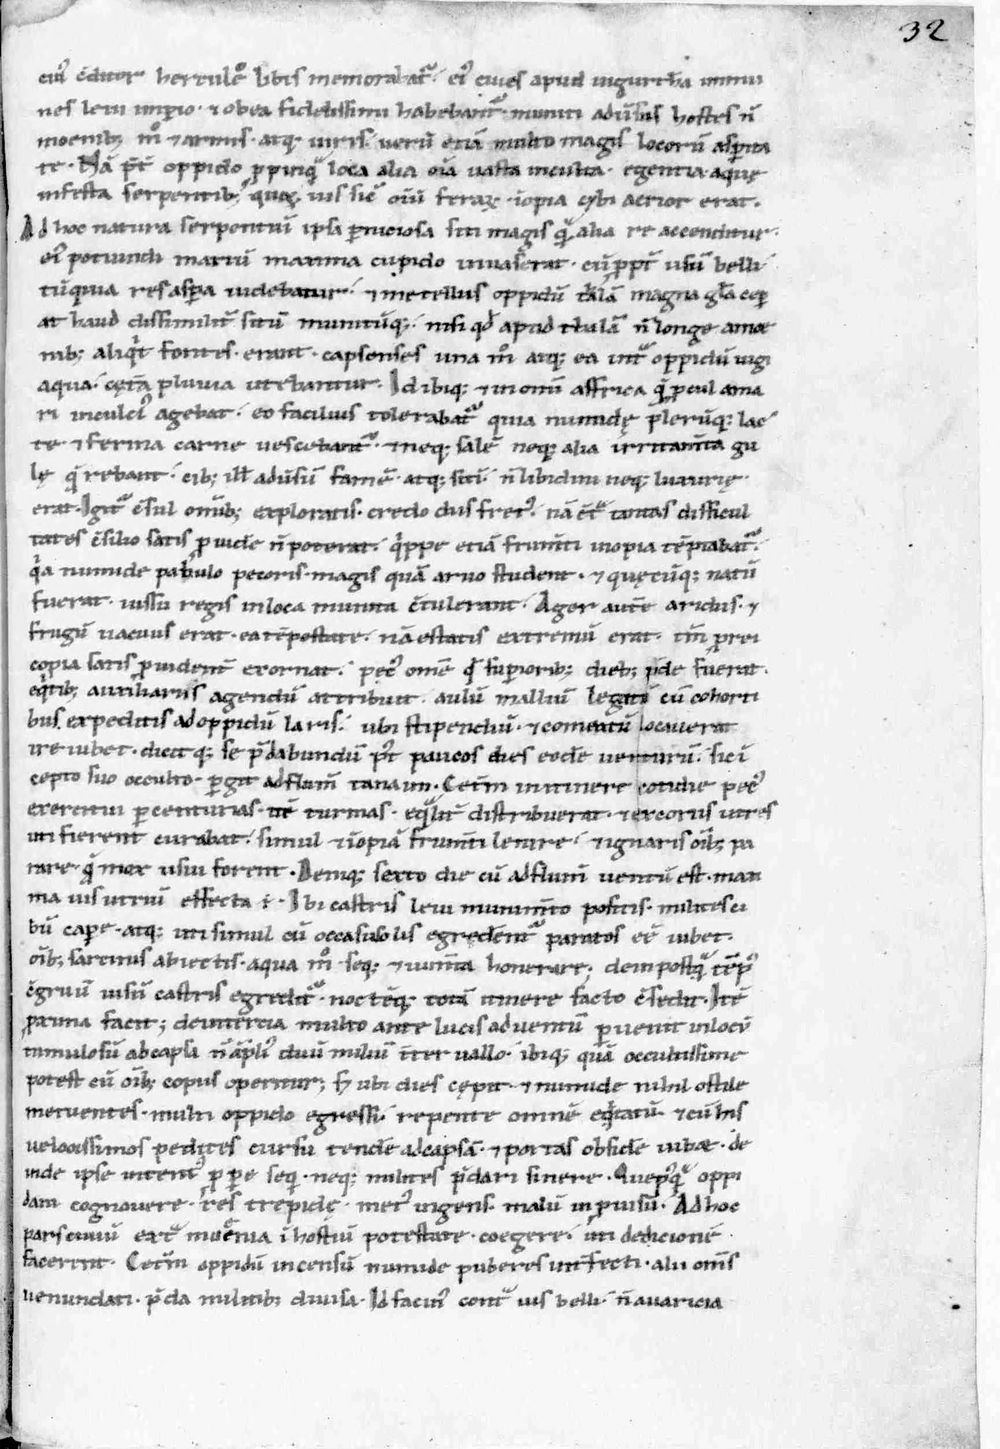 32
eiꝰ c̄ditor hercules libis memorabat᷑. eiꝰ ciues apud iugurtha inmu
nes leui imp̄io · ⁊ ob ea fidelissimi habebant᷑ · muniti adūsus hostes n̄
moenib; m̊ ⁊ armis · atq; uiris · uerū etiā multo magis locorū asp̄ita
te · Nā p̄t̄ oppido p̄pinq̄ loca alia oīa uasta inculta · egentia aquę
infesta serpentib; quoꝝ uis sic̄ oīū feraꝝ · iopia cybi acrior erat.
Ad hoc natura serpentiū ipsa p̄niciosa siti magis q̄ alia re accenditur.
eiꝰ potiundi mariū maxima cupido inuaserat · cū ppt̄ usū belli
tū quia res asp̄a uidebatur · ⁊ metellus oppidū thalā magna gl̄a cep̄
at haud dissimilit̄ sitū munitūq; nisi qd̄ apud thalā n̄ longe a moe
nib; aliq̄t fontes · erant · capsenses una m̊ atq; ea int᷑ oppidū iugi
aqua · cęt̄a pluuia utebantur · Id ibiq; ⁊ in omī affrica q̄ p̄cul a ma
ri incultiꝰ agebat · eo facilius tolerabat᷑ quia numidę pleruq; lac
te ⁊ ferina carne uescebant᷑ · ⁊ neq; salē neq; alia irritam̄ta gu
lę q̄rebant · cib; ill̄ adūsū famē · atq; sitī · n̄ libidini neq; luxurię
erat · Igit᷑ c̄sul omīb; exploratis · credo dis fretꝰ · nā c̄t᷑ tantas difficul
tates c̄silio satis p̄uide n̄ poterat · q̄ppe etiā frum̄ti inopia tēptabat᷑
q̄a numide pabulo pecoris · magis quā aruo student · ⁊ quęcūq; natū
fuerat · iussu regis in loca munita c̄tulerant · Ager autē aridus · ⁊
frugū uacuus erat · ea tēpestate · nā estatis extremū erat · tm̄ p rei
copia satis p̄uident̄ exornat · pec̄ omē q̄d supiorib; dieb; p̄de fuerat ·
eq̄tib; auxiliariis agendū attribuit · aulū malliū legatū cū cohorti
bus expeditis ad oppidū laris · ubi stipendiū · ⁊ comeatū locauerat
ire iubet · dicitq; se p̄dabundū p̄t paucos dies eodē uenturū · sic ī
cepto suo occulto · p̄git ad flum̄ tanaim · Cet̄m in itinere cotidie pec̄
exercitui p centurias · itē turmas · eq̄lit̄ distribuerat · ⁊ ex coriis utres
uti fierent curabat · simul ⁊ īopiā frum̄ti lenire · ⁊ ignaris oīb; pa
rare · q̄ mox usui forent · Deniq; sexto die cū ad flum̄ uentū est · maxi
ma uis utriū effecta ē · Ibi castris leui munim̄to positis · milites ci
bū cape · atq; uti simul cū occasu solis egredent᷑ paratos eē iubet.
oīb; sarcinis abiectis · aqua m̊ · seq; ⁊ ium̄ta honerare; dein postq̄ tēpꝰ
c̄gruū uisū castris egredit᷑ · noctēq; totā itinere facto c̄sedit · Itē
proxima facit; dein tercia multo ante lucis aduentū peruenit in locū
tumulosū ab capsa n̄ ampliꝰ duū miliū int̄uallo · ibiq; quā occultissime
potest cū oīb; copiis operitur; sꝫ ubi dies cępit · ⁊ numide nihil ostile
metuentes · multi oppido egressi · repente omnē eq̄tatū · ⁊ cū his
uelocissimos pedites cursu tendē ad capsā · ⁊ portas obsidē iubet · de
inde ipse intentꝰ p̄pere seq̄ · neq; milites p̄dari sinere · Que pꝰq̄ oppi
dani cognouere · res trepidę · metꝰ ingens · malū inp̄uisū · Ad hoc
pars ciuiū ext᷑ muenia ī hostiū potestate · coegere · uti dedicionē
facerent · Cet̄m oppidū incensū numide puberes int̄fecti · alii om̄s
uenundati · p̄da militib; diuisa · Id facinꝰ cont᷑ ius belli · n̄ auaricia